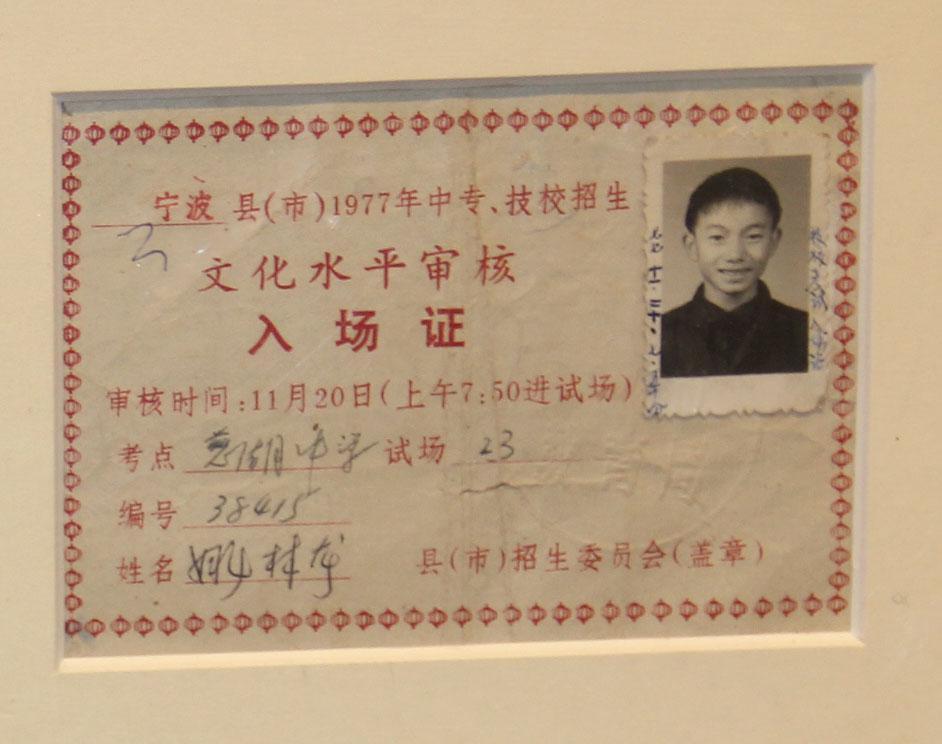 宁波 县(市)1977年中专、技校招生
文化水平审核
入场证
审核时间:11月20日(上午7:50进试场)
考点 慈湖中学 试场 23
编号 38415
姓名 姚林龙 县(市)招生委员会(盖章)